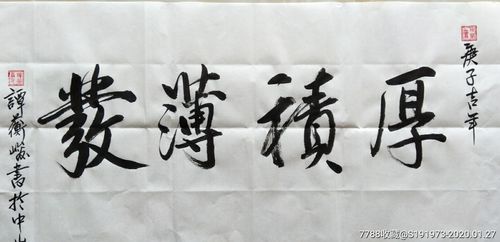 庚子吉年
厚積薄發
譚蘅燊書於中山
7788收藏@S191973-2020.01.27